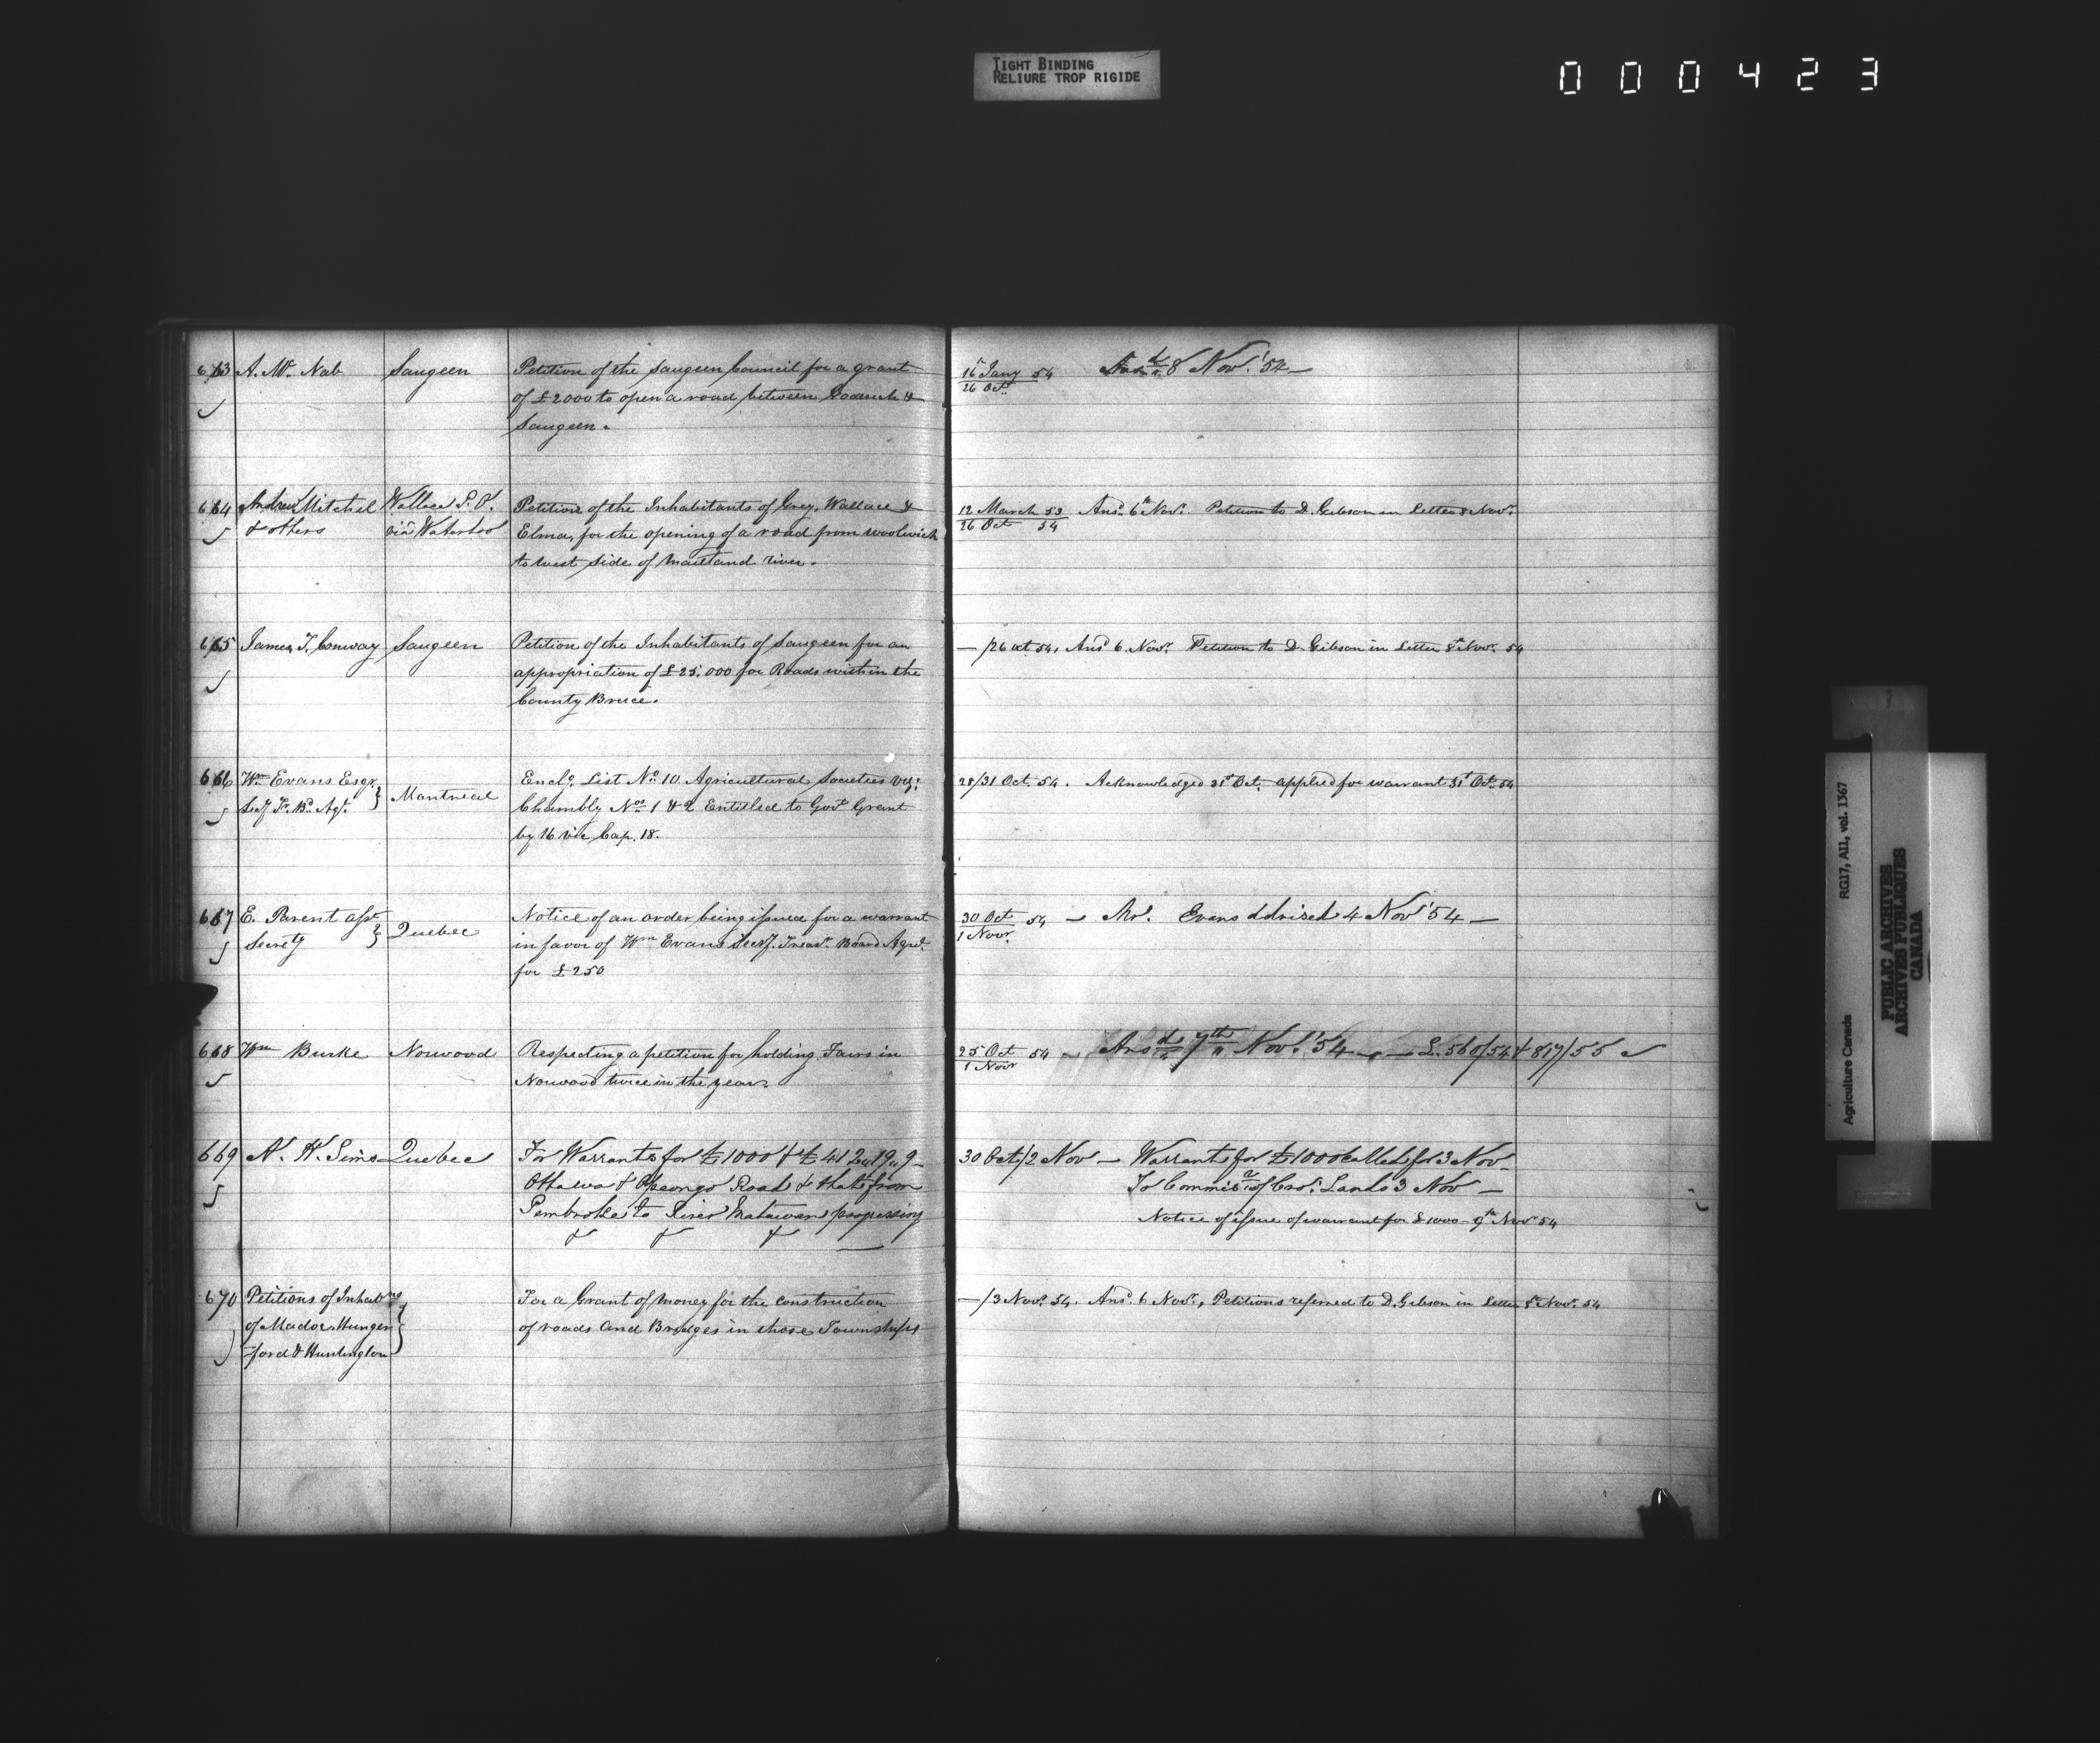 TIGHT BINDING
RELIURE TROP RIGIDE
000423
663 A. Mc. Nab Saugeen Petition of the Saugeen Council for a grant 16 Jany 54 Ansd. 8 Nov. '54 —
of £2000 to open a road between Goderich & 26 Oct.
Saugeen.
664 Andrew Mitchel Wallace P.O. Petition of the Inhabitants of Grey, Wallace & 12 March 53 Ansd. 6th Nov. Petition to D. Gibson in Letter 8 Nov.
& others viâ Waterloo Elma, for the opening of a road from Woolwich 26 Oct 54
to West side of Maitland river.
665 James T. Conway Saugeen Petition of the Inhabitants of Saugeen for an —/26 Oct 54. Ansd 6. Nov. Petition to D. Gibson in Letter 8th Nov. 54
appropriation of £25.000 for Roads within the
County Bruce.
666 Wm Evans Esqr. Montreal Enclg. List No. 10 Agricultural Societies viz: 28/31 Oct. 54. Acknowledged 31st Oct. applied for warrant 31st Oct. 54
Secy Tr. Bd. Agr. } Chambly Nos. 1 & 2 Entitled to Govt. Grant
by 16 Vic Cap. 18.
667 E. Parent asst. Quebec Notice of an order being issued for a warrant 30 Oct 54 — Mr. Evans advised 4 Nov '54 —
Secrety } in favor of Wm Evans Secy. Treasr. Board Agrl. 1 Novr.
for £250
668 Wm Burke Norwood Respecting a petition for holding Fairs in 25 Oct 54 — Ansd. 7th Nov. '54 — — L. 560/54 & 817/55
Norwood twice in the year. 1 Novr
669 N. H. Sims Quebec For Warrants for £1000 & £412,,19,,9 30 Oct/2 Nov — Warrant for £1000 called for 3 Nov —
Ottawa & Opeongo Road & that from To Commisr. of Cro: Lands 3 Nov —
Pembroke to River Matawan progressing Notice of issue of warrant for £1000 — 9th Nov 54
& & & —
670 Petitions of Inhabng For a Grant of money for the construction —/3 Nov. 54. Ansd. 6 Nov., Petitions referred to D. Gibson in Letter 8th Nov. 54
of Madoc, Hunger of roads and Bridges in those Townships
ford & Huntington }
Agriculture Canada RG17, A11, vol. 1367
PUBLIC ARCHIVES
ARCHIVES PUBLIQUES
CANADA